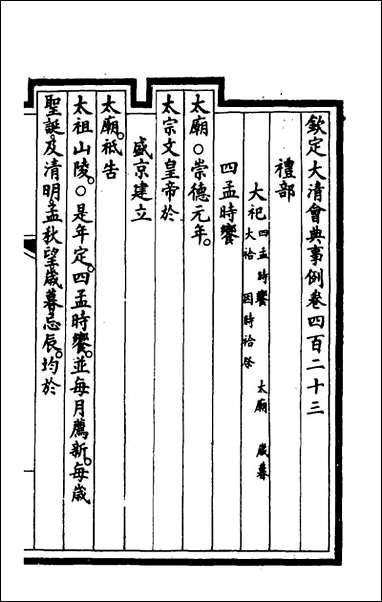 欽定大清會典事例卷四百二十三
禮部
大祀四孟時饗 太廟 歲暮
大祫 因時祫祭
四孟時饗
太廟○崇德元年。
太宗文皇帝於
盛京建立
太廟。祗告
太祖山陵。○是年定。四孟時饗。並每月薦新。每歲
聖誕。及清明。孟秋望。歲暮。忌辰。均於